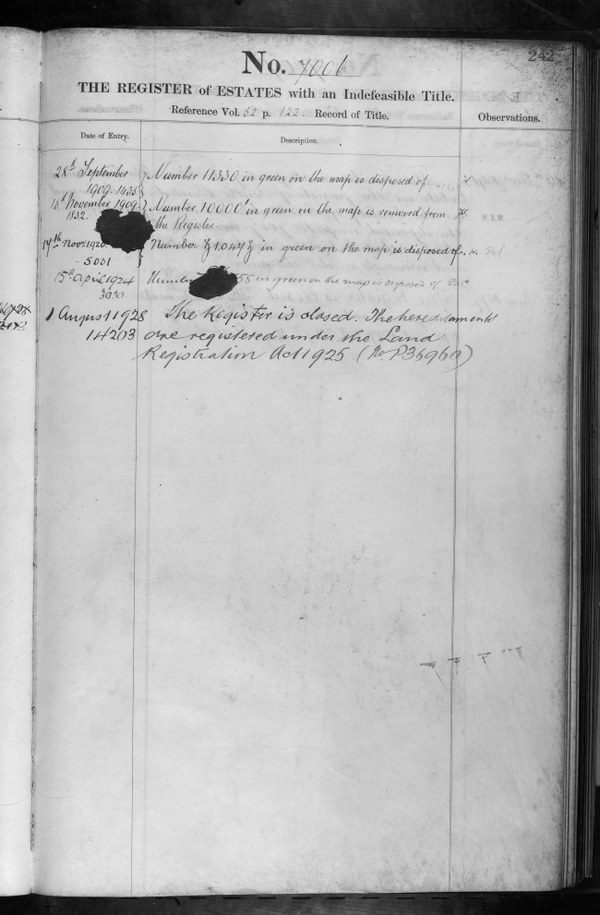 242
No. 7006
THE REGISTER of ESTATES with an Indefeasible Title.
Reference Vol. 52 p. 122. Record of Title.
Observations.
Date of Entry.
Description.
28th September
1909. 1435
Number 11330 in green on the map is disposed of
18th November 1909
1832.
Number 10000 in green on the map is removed from
the Register
17th Novr 1920
5001
Number in green on the map is disposed of.
15th April 1924
3030
58 in green on the map is disposed of
1 August 1928
14203
The Register is closed. The hereditaments
are registered under the Land
Registration Act 1925 (No P36960)